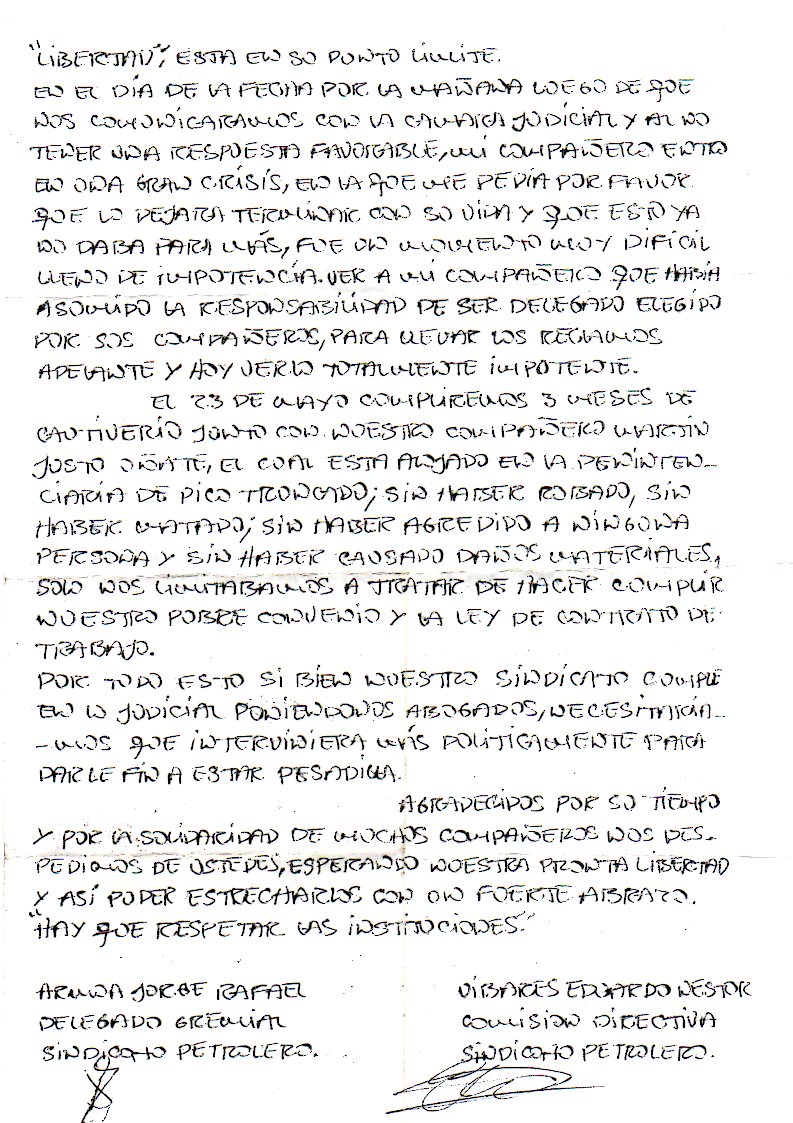 "LIBERTAD", ESTA EN SU PUNTO LIMITE.
EN EL DÍA DE LA FECHA POR LA MAÑANA LUEGO DE QUE
NOS COMUNICARAMOS CON LA CAMARA JUDICIAL Y AL NO
TENER UNA RESPUESTA FAVORABLE, MI COMPAÑERO ENTRO
EN UNA GRAN CRISIS, EN LA QUE ME PEDIA POR FAVOR
QUE LO DEJARA TERMINAR CON SU VIDA Y QUE ESTO YA
NO DABA PARA MÁS, FUE UN MOMENTO MUY DIFÍCIL
LLENO DE IMPOTENCIA. VER A MI COMPAÑERO QUE HABIA
ASUMIDO LA RESPONSABILIDAD DE SER DELEGADO ELEGIDO
POR SUS COMPAÑEROS, PARA LLEVAR LOS RECLAMOS
ADELANTE Y HOY VERLO TOTALMENTE IMPOTENTE.
EL 23 DE MAYO CUMPLIREMOS 3 MESES DE
CAUTIVERIO JUNTO CON NUESTRO COMPAÑERO MARTÍN
JUSTO OÑATE, EL CUAL ESTA ALOJADO EN LA PENINTEN-
CIARIA DE PICO TRUNCADO; SIN HABER ROBADO, SIN
HABER MATADO; SIN HABER AGREDIDO A NINGUNA
PERSONA Y SIN HABER CAUSADO DAÑOS MATERIALES,
SOLO NOS LIMITABAMOS A TRATAR DE HACER CUMPLIR
NUESTRO POBRE CONVENIO Y LA LEY DE CONTRATO DE
TRABAJO.
POR TODO ESTO SI BIEN NUESTRO SINDICATO CUMPLE
EN LO JUDICIAL PONIENDONOS ABOGADOS, NECESITARIA-
-MOS QUE INTERVINIERA MÁS POLÍTICAMENTE PARA
DARLE FIN A ESTAR PESADILLA.
AGRADECIDOS POR SU TIEMPO
Y POR LA SOLIDARIDAD DE MUCHOS COMPAÑEROS NOS DES-
PEDIMOS DE USTEDES, ESPERANDO NUESTRA PRONTA LIBERTAD
Y ASÍ PODER ESTRECHARLOS CON UN FUERTE ABRAZO.
"HAY QUE RESPETAR LAS INSTITUCIONES."
ARMOA JORGE RAFAEL
DELEGADO GREMIAL
SINDICATO PETROLERO.
VIBARES EDUARDO NESTOR
COMISION DIRECTIVA
SINDICATO PETROLERO.